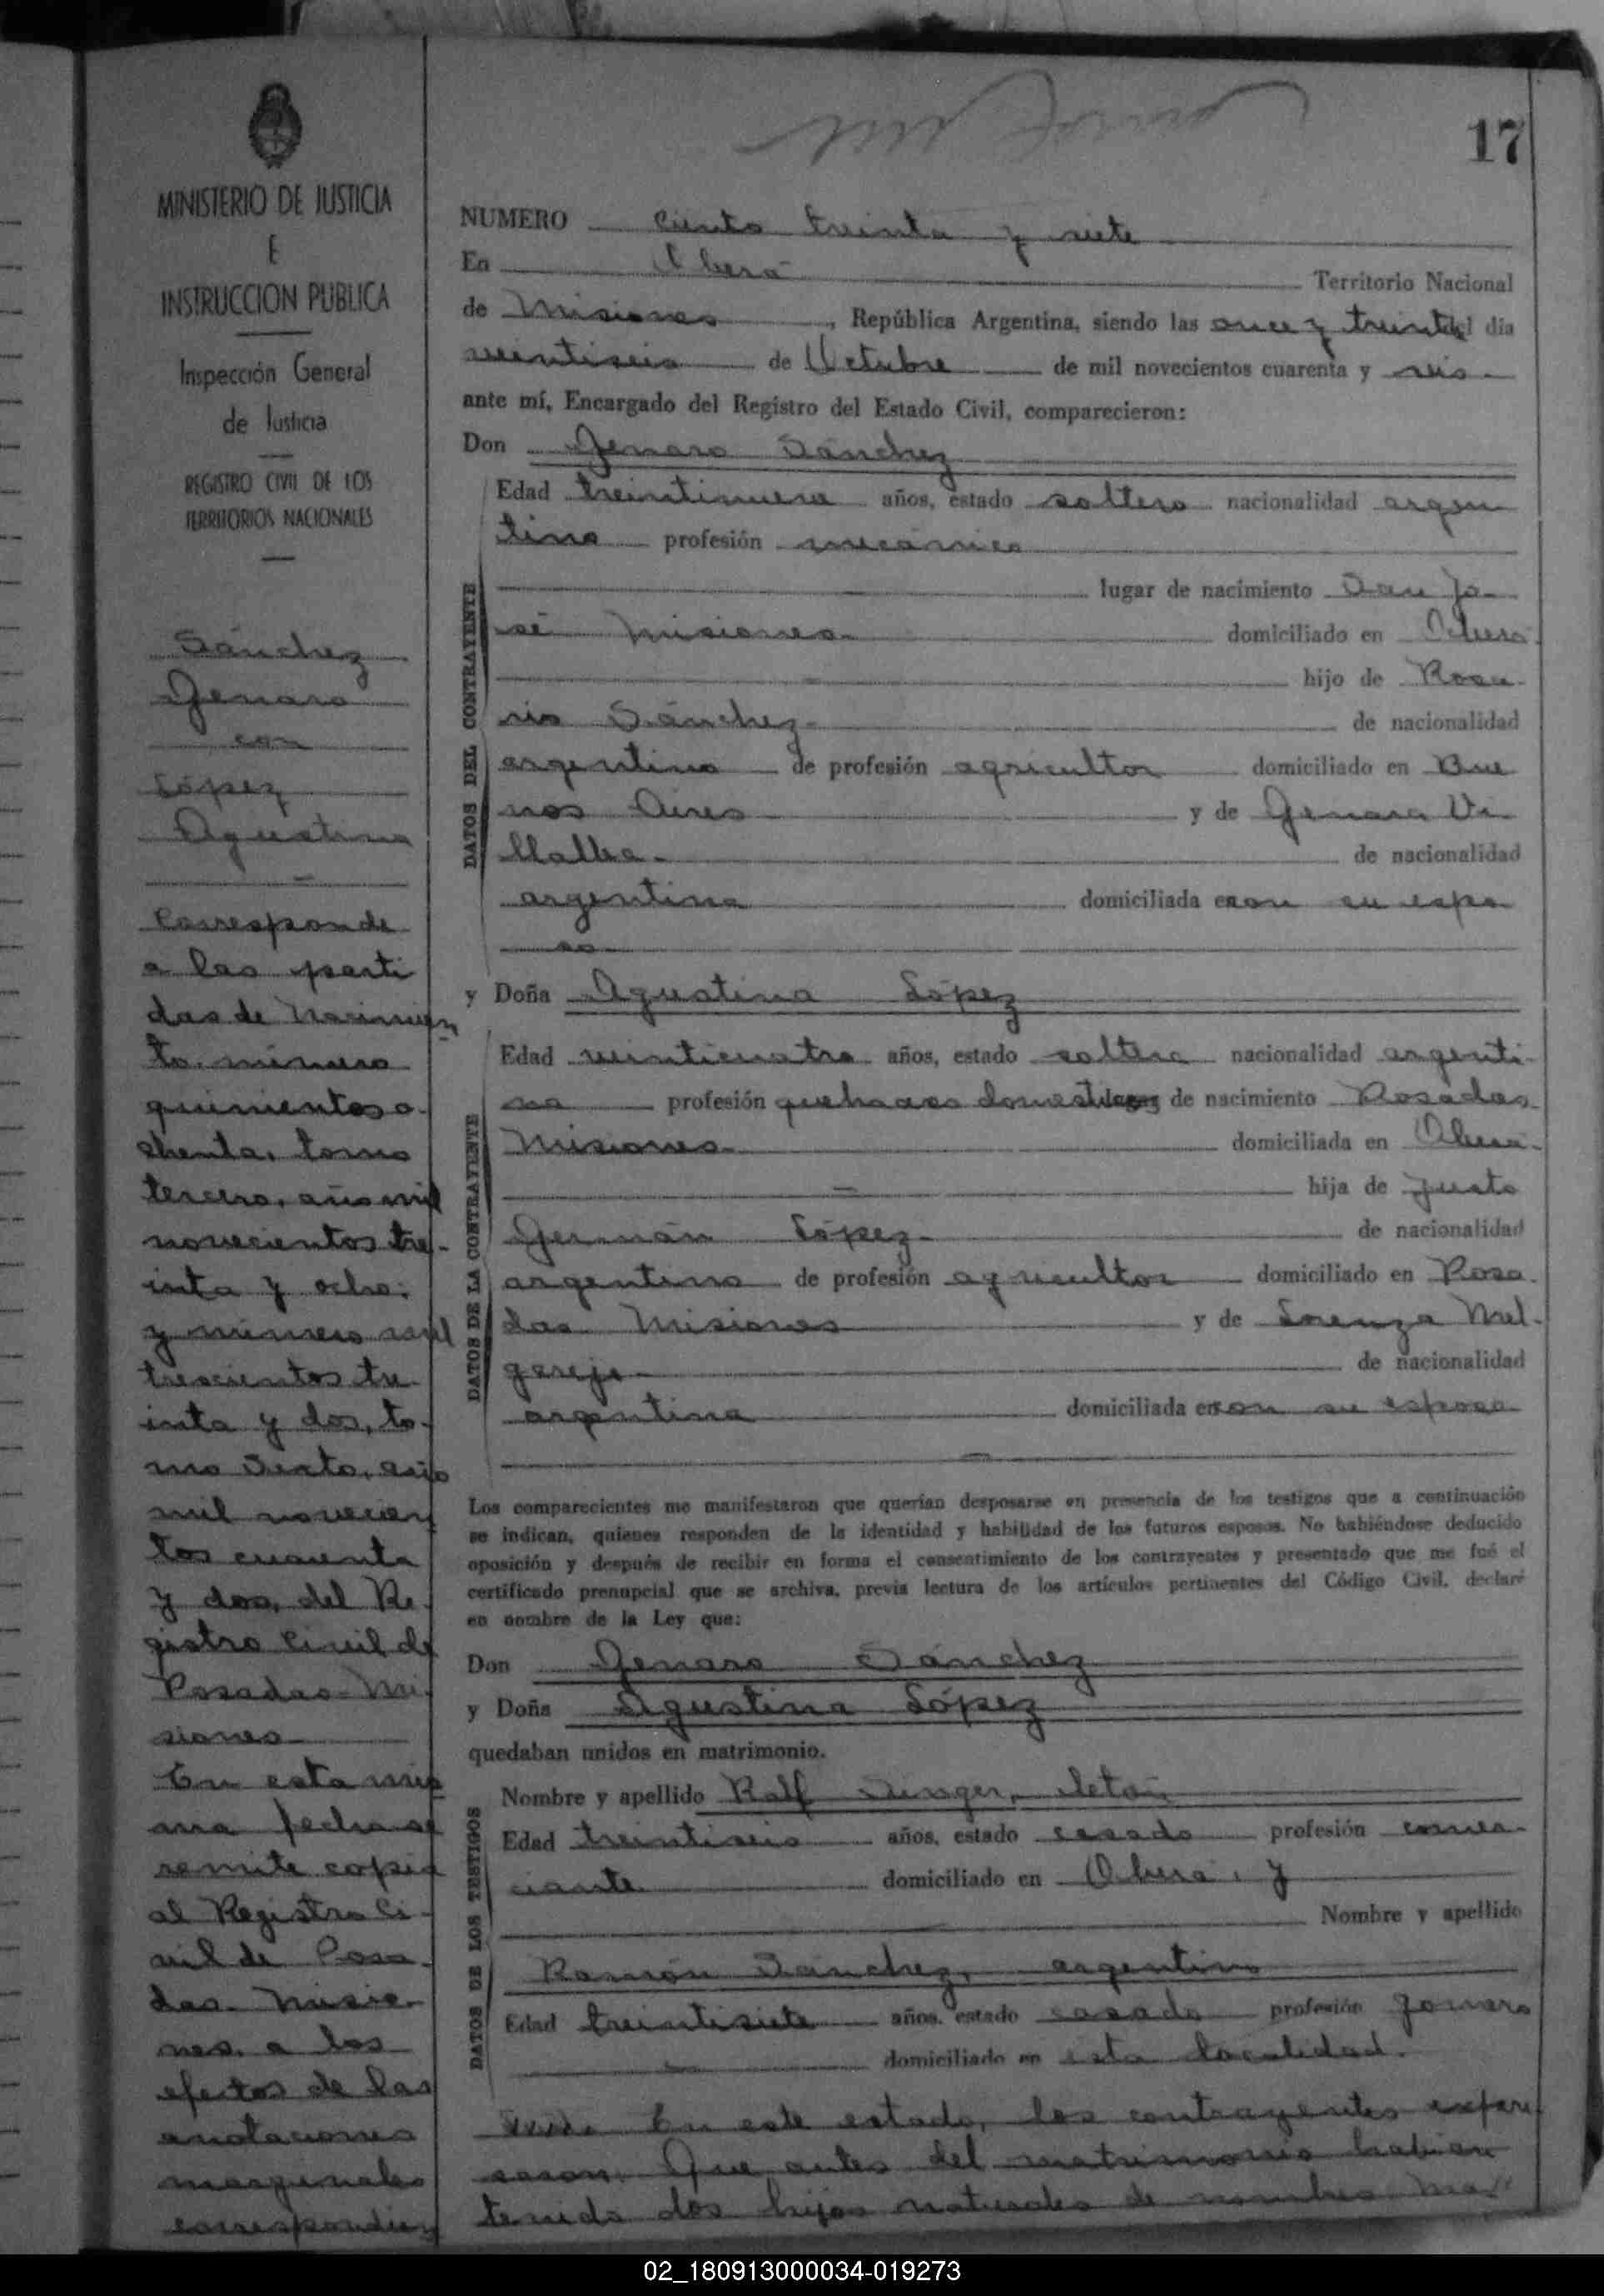 17
MINISTERIO DE JUSTICIA
E
INSTRUCCION PUBLICA
Inspección General
de Justicia
REGISTRO CIVIL DE LOS
TERRITORIOS NACIONALES
Sánchez
Genaro
con
López
Agustina
Corresponde
a las parti
das de Nacimien
to, número
quinientos o-
chenta, tomo
tercero, año mil
novecientos tre-
inta y ocho;
y número mil
trescientos tre-
inta y dos, to-
mo Sexto, año
mil novecien
tos cuarenta
y dos, del Re-
gistro Civil de
Posadas-Mi-
siones
En esta mis
ma fecha se
remite copia
al Registro Ci-
vil de Posa-
das-Misio-
nes, a los
efectos de las
anotaciones
marginales
correspondien
NUMERO ciento treinta y siete
En Oberá Territorio Nacional
de Misiones, República Argentina, siendo las once y treinta del dia
veintiseis de Octubre de mil novecientos cuarenta y seis
ante mí, Encargado del Registro del Estado Civil, comparecieron:
Don Genaro Sánchez
DATOS DEL CONTRAYENTE
Edad treintinueve años, estado soltero nacionalidad argen
tino profesión mecánico
lugar de nacimiento San Jo-
sé Misiones domiciliado en Oberá
hijo de Rosa-
rio Sánchez de nacionalidad
argentino de profesión agricultor domiciliado en Bue
nos Aires y de Genara Vi-
llalba de nacionalidad
argentina domiciliada en con su espo
so
y Doña Agustina López
DATOS DE LA CONTRAYENTE
Edad veinticuatro años, estado soltera nacionalidad argenti-
na profesión quehaceres domesticos lugar de nacimiento Posadas
Misiones domiciliada en Oberá
hija de Justo
Germán López de nacionalidad
argentino de profesión agricultor domiciliado en Posa-
das Misiones y de Lorenza Mel-
garejo de nacionalidad
argentina domiciliada en con su esposo
Los comparecientes me manifestaron que querían desposarse en presencia de los testigos que a continuación
se indican, quienes responden de la identidad y habilidad de los futuros esposos. No habiéndose deducido
oposición y después de recibir en forma el consentimiento de los contrayentes y presentado que me fué el
certificado prenupcial que se archiva, previa lectura de los artículos pertinentes del Código Civil, declaré
en nombre de la Ley que:
Don Genaro Sánchez
y Doña Agustina López
quedaban unidos en matrimonio.
DATOS DE LOS TESTIGOS
Nombre y apellido Ralf Singer,
Edad treintiseis años, estado casado profesión comer-
ciante domiciliado en Oberá, y
Nombre y apellido
Ramón Sánchez, argentino
Edad treintisiete años, estado casado profesión
domiciliado en esta localidad.
En este estado, los contrayentes expre
saron: Que antes del matrimonio habian
tenido dos hijos naturales de nombre
02_180913000034-019273